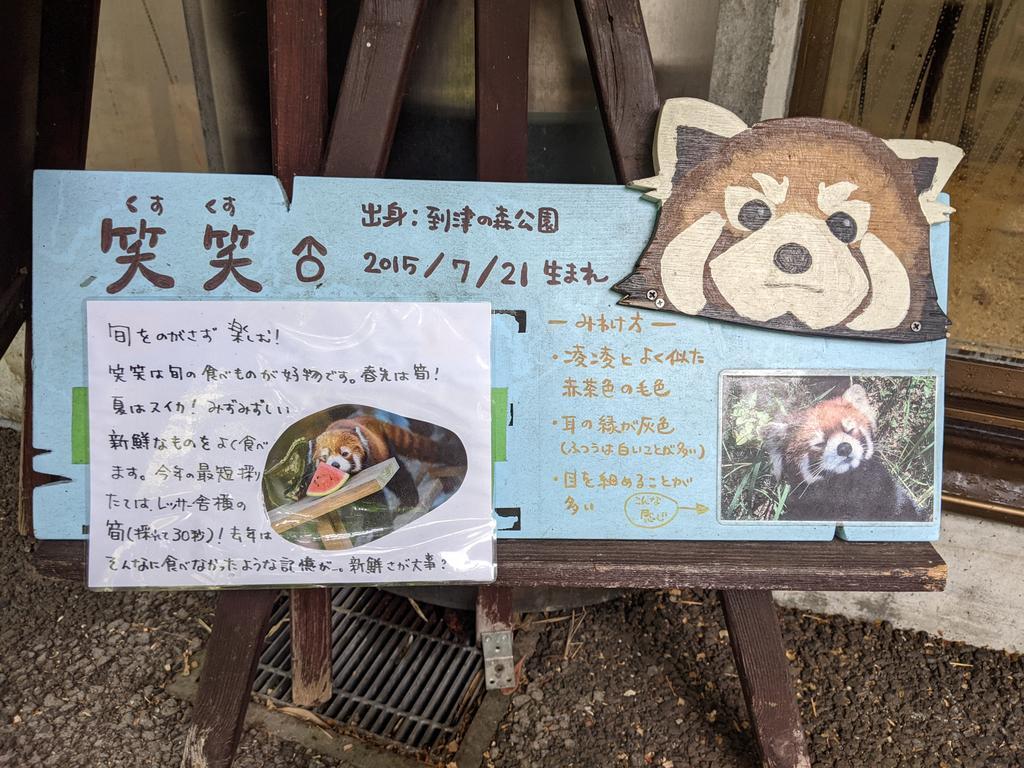 くす くす
笑 笑 ♂
出身：到津の森公園
2015/7/21 生まれ
旬をのがさず 楽しむ！
笑笑は旬の食べものが好物です。春先は筍！
夏はスイカ！みずみずしい
新鮮なものをよく食べ
ます。今年の最短採り
たては、レッサー舎横の
筍(採れて30秒)！去年は
そんなに食べなかったような記憶が…。新鮮さが大事？
ーみわけ方ー
・凌凌とよく似た
赤茶色の毛色
・耳の縁が灰色
(ふつうは白いことが多い)
・目を細めることが
多い
こんな
感じ